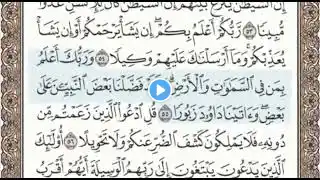 إِنَّ ٱلشَّيْطَٰنَ يَنزَغُ بَيْنَهُمْ إِنَّ ٱلشَّيْطَٰنَ كَانَ لِلْإِنسَٰنِ عَدُوًّا
مُّبِينًا ٥٣ رَّبُّكُمْ أَعْلَمُ بِكُمْ إِن يَشَأْ يَرْحَمْكُمْ أَوْ إِن يَشَأْ
يُعَذِّبْكُمْ وَمَآ أَرْسَلْنَٰكَ عَلَيْهِمْ وَكِيلًا ٥٤ وَرَبُّكَ أَعْلَمُ
بِمَن فِى ٱلسَّمَٰوَٰتِ وَٱلْأَرْضِ فَضَّلْنَا بَعْضَ ٱلنَّبِيِّۦنَ عَلَىٰ
بَعْضٍ وَءَاتَيْنَا دَاوُۥدَ زَبُورًا ٥٥ قُلِ ٱدْعُوا۟ ٱلَّذِينَ زَعَمْتُم مِّن
دُونِهِۦ فَلَا يَمْلِكُونَ كَشْفَ ٱلضُّرِّ عَنكُمْ وَلَا تَحْوِيلًا ٥٦ أُو۟لَٰٓئِكَ
ٱلَّذِينَ يَدْعُونَ يَبْتَغُونَ إِلَىٰ رَبِّهِمُ ٱلْوَسِيلَةَ أَيُّهُمْ أَقْرَبُ